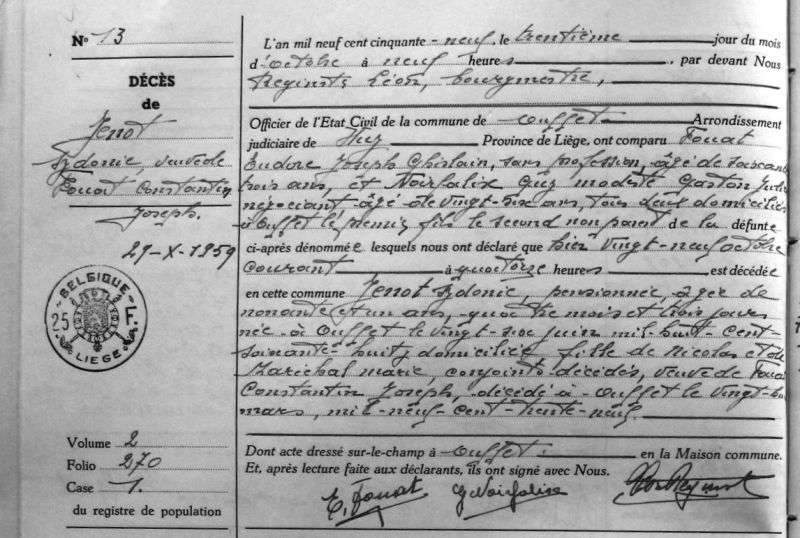 N° 13
DÉCÈS
de
Jenot
Sydonie, veuve de
Fouat Constantin
Joseph.
29-X-1959
BELGIQUE
25 F.
LIEGE
Volume 2
Folio 270
Case 1.
du registre de population
L'an mil neuf cent cinquante-neuf, le trentième jour du mois
d'octobre à neuf heures, par devant Nous
Léon, bourgmestre,
Officier de l'Etat Civil de la commune de Ouffet Arrondissement
judiciaire de Huy Province de Liège, ont comparu Fouat
Eudore Joseph Ghislain, sans profession, âgé de soixante
trois ans, et Noirfalix Guy modeste Gaston Jules
négociant âgé de vingt-six ans, tous deux domiciliés
à Ouffet le premier fils le second non parent de la défunte
ci-après dénommée lesquels nous ont déclaré que hier vingt-neuf octobre
courant à quatorze heures est décédée
en cette commune Jenot Sydonie, pensionnée, âgée de
nonante et un ans, quatre mois et trois jours
née à Ouffet le vingt-six juin mil-huit-cent-
soixante-huit, domiciliée, fille de Nicolas et de
Maréchal marie, conjoints décédés, veuve de Fouat
Constantin Joseph, décédé à Ouffet le vingt-
mars, mil-neuf-cent-trente-neuf.
Dont acte dressé sur-le-champ à Ouffet. en la Maison commune.
Et, après lecture faite aux déclarants, ils ont signé avec Nous.
E. Fouat G Noirfalise